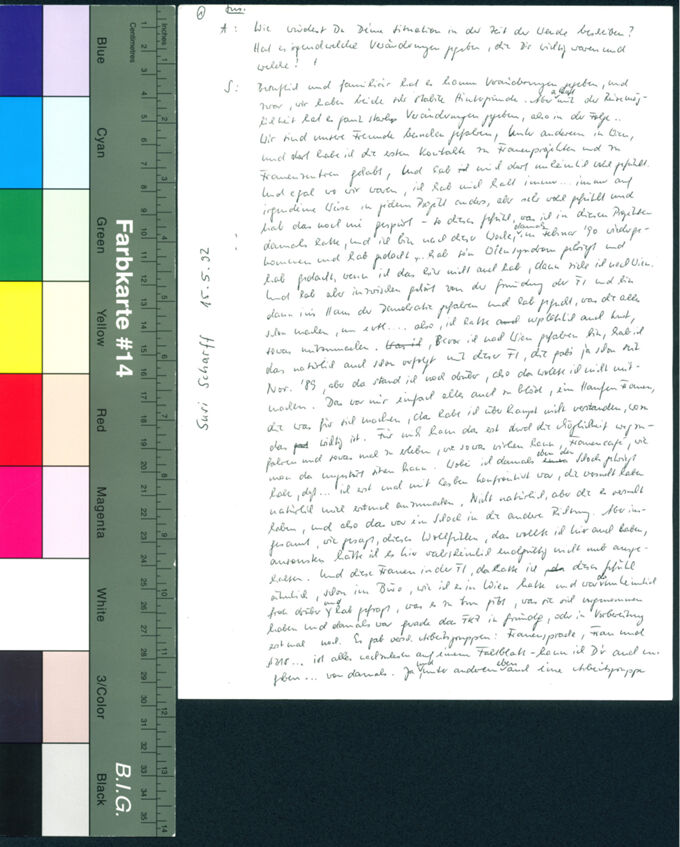 A: Wie würdest Du Deine Situation in der Zeit der Wende beschreiben?
Hat es irgendwelche Veränderungen gegeben, die Dir wichtig waren und
welche?
S: Beruflich und familiär hat es kaum Veränderungen gegeben, und
zwar, wir haben beide sehr stabile Hintergründe. Aber mit der Reisemög-
lichkeit hat es ganz starke Veränderungen gegeben, also in der Folge..
Wir sind unsere Freunde besuchen gefahren, unter anderem in Wien,
und dort habe ich die ersten Kontakte zu Frauenprojekten und zu
Frauenzentren gehabt, und hab mich dort unheimlich wohl gefühlt.
Und egal wo wir waren, ich hab mich halt immer... immer auf
irgendeine Weise in jedem Projekt anders, aber sehr wohl gefühlt und
hab das noch nie gespürt - so dieses Gefühl, was ich in diesen Projekten
damals hatte, und ich bin nach dieser Woche, damals im Februar '90 wiederge-
kommen und hab gedacht, hab ein Wiensyndrom gekriegt und
hab gedacht, wenn ich das hier nicht auch hab, dann ziehe ich nach Wien.
Und hab aber inzwischen gehört von der Gründung der FI und bin
dann ins Haus der Demokratie gefahren und hab geguckt, was die alles
schon machen, um ... also, ich hatte urplötzlich auch Lust,
sowas mitzumachen. Bevor ich nach Wien gefahren bin, hab ich
das natürlich auch schon verfolgt mit dieser FI, die gabs ja schon seit
Nov. '89, aber da stand ich noch drüber, also das wollte ich nicht mit-
machen. Das war mir einfach alles auch zu blöd, ein Haufen Frauen,
die was für sich machen, das habe ich überhaupt nicht verstanden, wozu
das wichtig ist. Für mich kam das erst durch die Möglichkeit wegzu-
fahren und sowas mal zu erleben, wie sowas wirken kann, Frauencafe, wie
man da ungestört sitzen kann. Wobei ich damals eben den Schock gekriegt
habe, daß... ich erst mal mit Lesben konfrontiert war, die versucht haben
natürlich mich erstmal anzumachen. Nicht natürlich, aber die es versucht
haben, und also das war ein Schock in die andere Richtung. Aber ins-
gesamt, wie gesagt, dieses Wohlfühlen, das wollte ich hier auch haben,
ansonsten hätte ich es hier wahrscheinlich endgültig nicht mehr ausge-
halten. Und diese Frauen in der FI, da hatte ich dieses Gefühl
ähnlich, schon im Büro, wie ich es in Wien hatte und war da unheimlich
froh drüber und hab gefragt, was es zu tun gibt, was sie sich vorgenommen
haben und damals war gerade das FKZ in Gründg. oder in Vorbereitung
erst mal noch. Es gab versch. Arbeitsgruppen: Frauensprache, Frau und
... ist alles nachzulesen auf einem Faltblatt - kann ich Dir auch
geben... von damals. Ja und unter anderem eben auch eine Arbeitsgruppe
Susi Scharff 15.5.02
Centimetres
Inches
1
2
3
4
5
6
7
8
9
10
11
12
13
14
15
16
17
18
19
20
21
22
23
24
25
26
27
28
29
30
31
32
33
34
35
1
2
3
4
5
6
7
8
9
10
11
12
13
14
Farbkarte #14
B.I.G.
Blue
Cyan
Green
Yellow
Red
Magenta
White
3/Color
Black